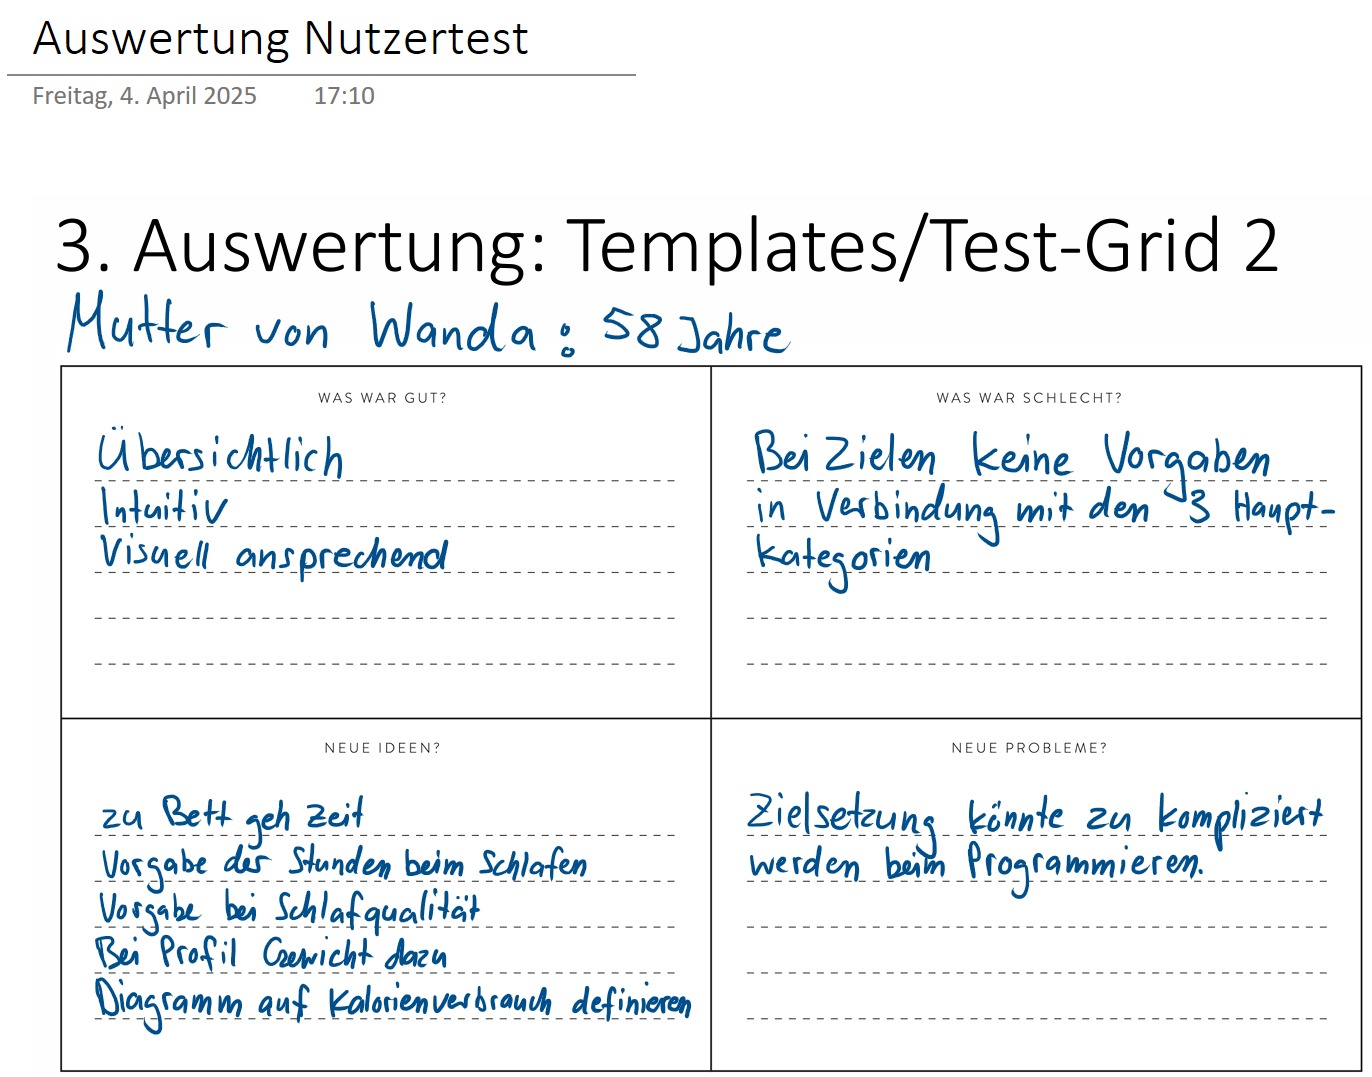 Auswertung Nutzertest
Freitag, 4. April 2025 17:10
3. Auswertung: Templates/Test-Grid 2
Mutter von Wanda: 58 Jahre
WAS WAR GUT?
Übersichtlich
Intuitiv
Visuell ansprechend
WAS WAR SCHLECHT?
Bei Zielen keine Vorgaben
in Verbindung mit den 3 Haupt-
kategorien
NEUE IDEEN?
zu Bett geh Zeit
Vorgabe der Stunden beim Schlafen
Vorgabe bei Schlafqualität
Bei Profil Gewicht dazu
Diagramm auf Kalorienverbrauch definieren
NEUE PROBLEME?
Zielsetzung könnte zu kompliziert
werden beim Programmieren.